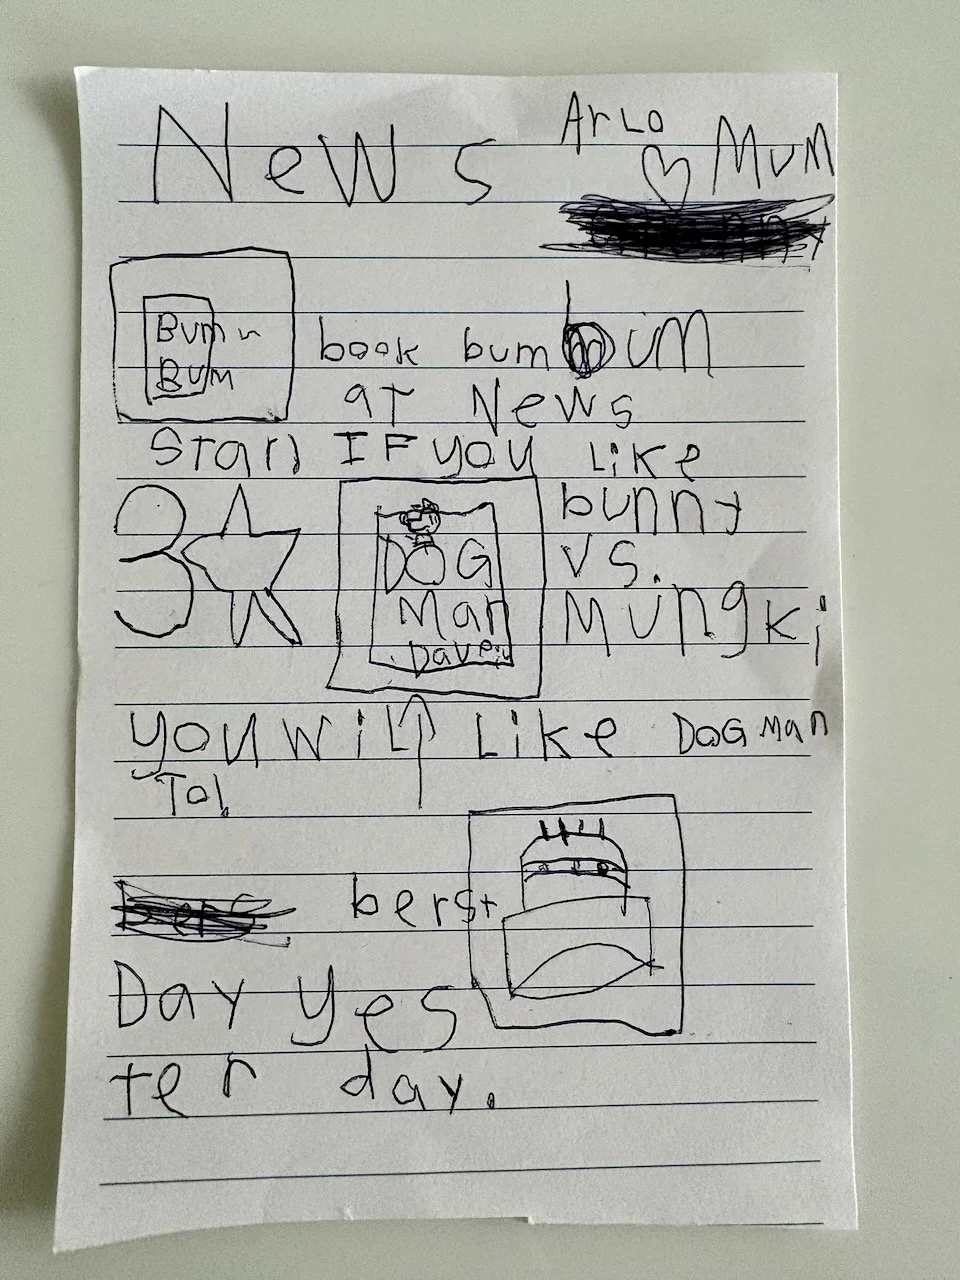 News
ArLo
Mum
Bum
Bum
book bum bum
at News
Stan IF you Like
3
bunny
vs.
Mungki
DOG
Man
Dave
you wil Like DOG Man
To!
berst
Day yes
ter day.